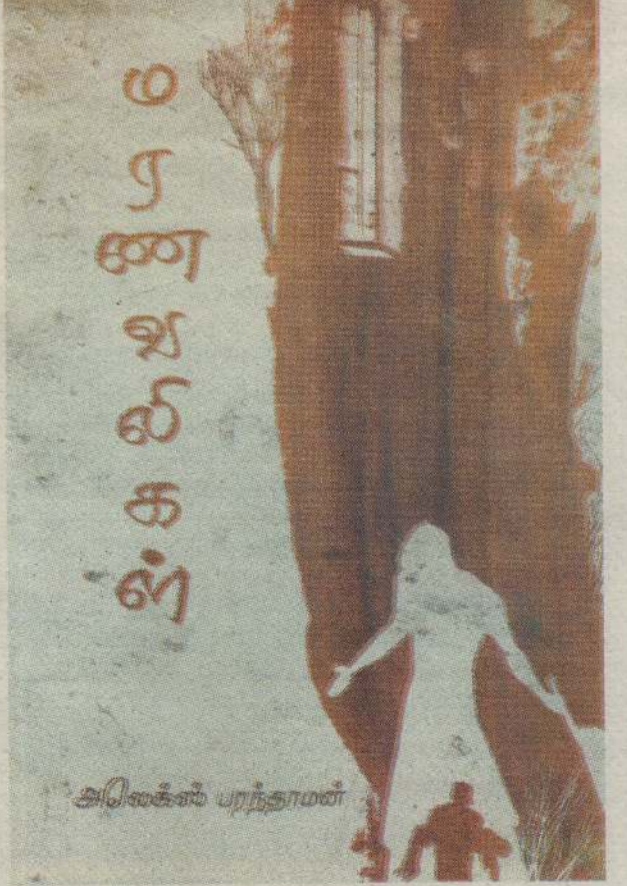 மரணவலிகள்
அலெக்ஸ் பரந்தாமன்